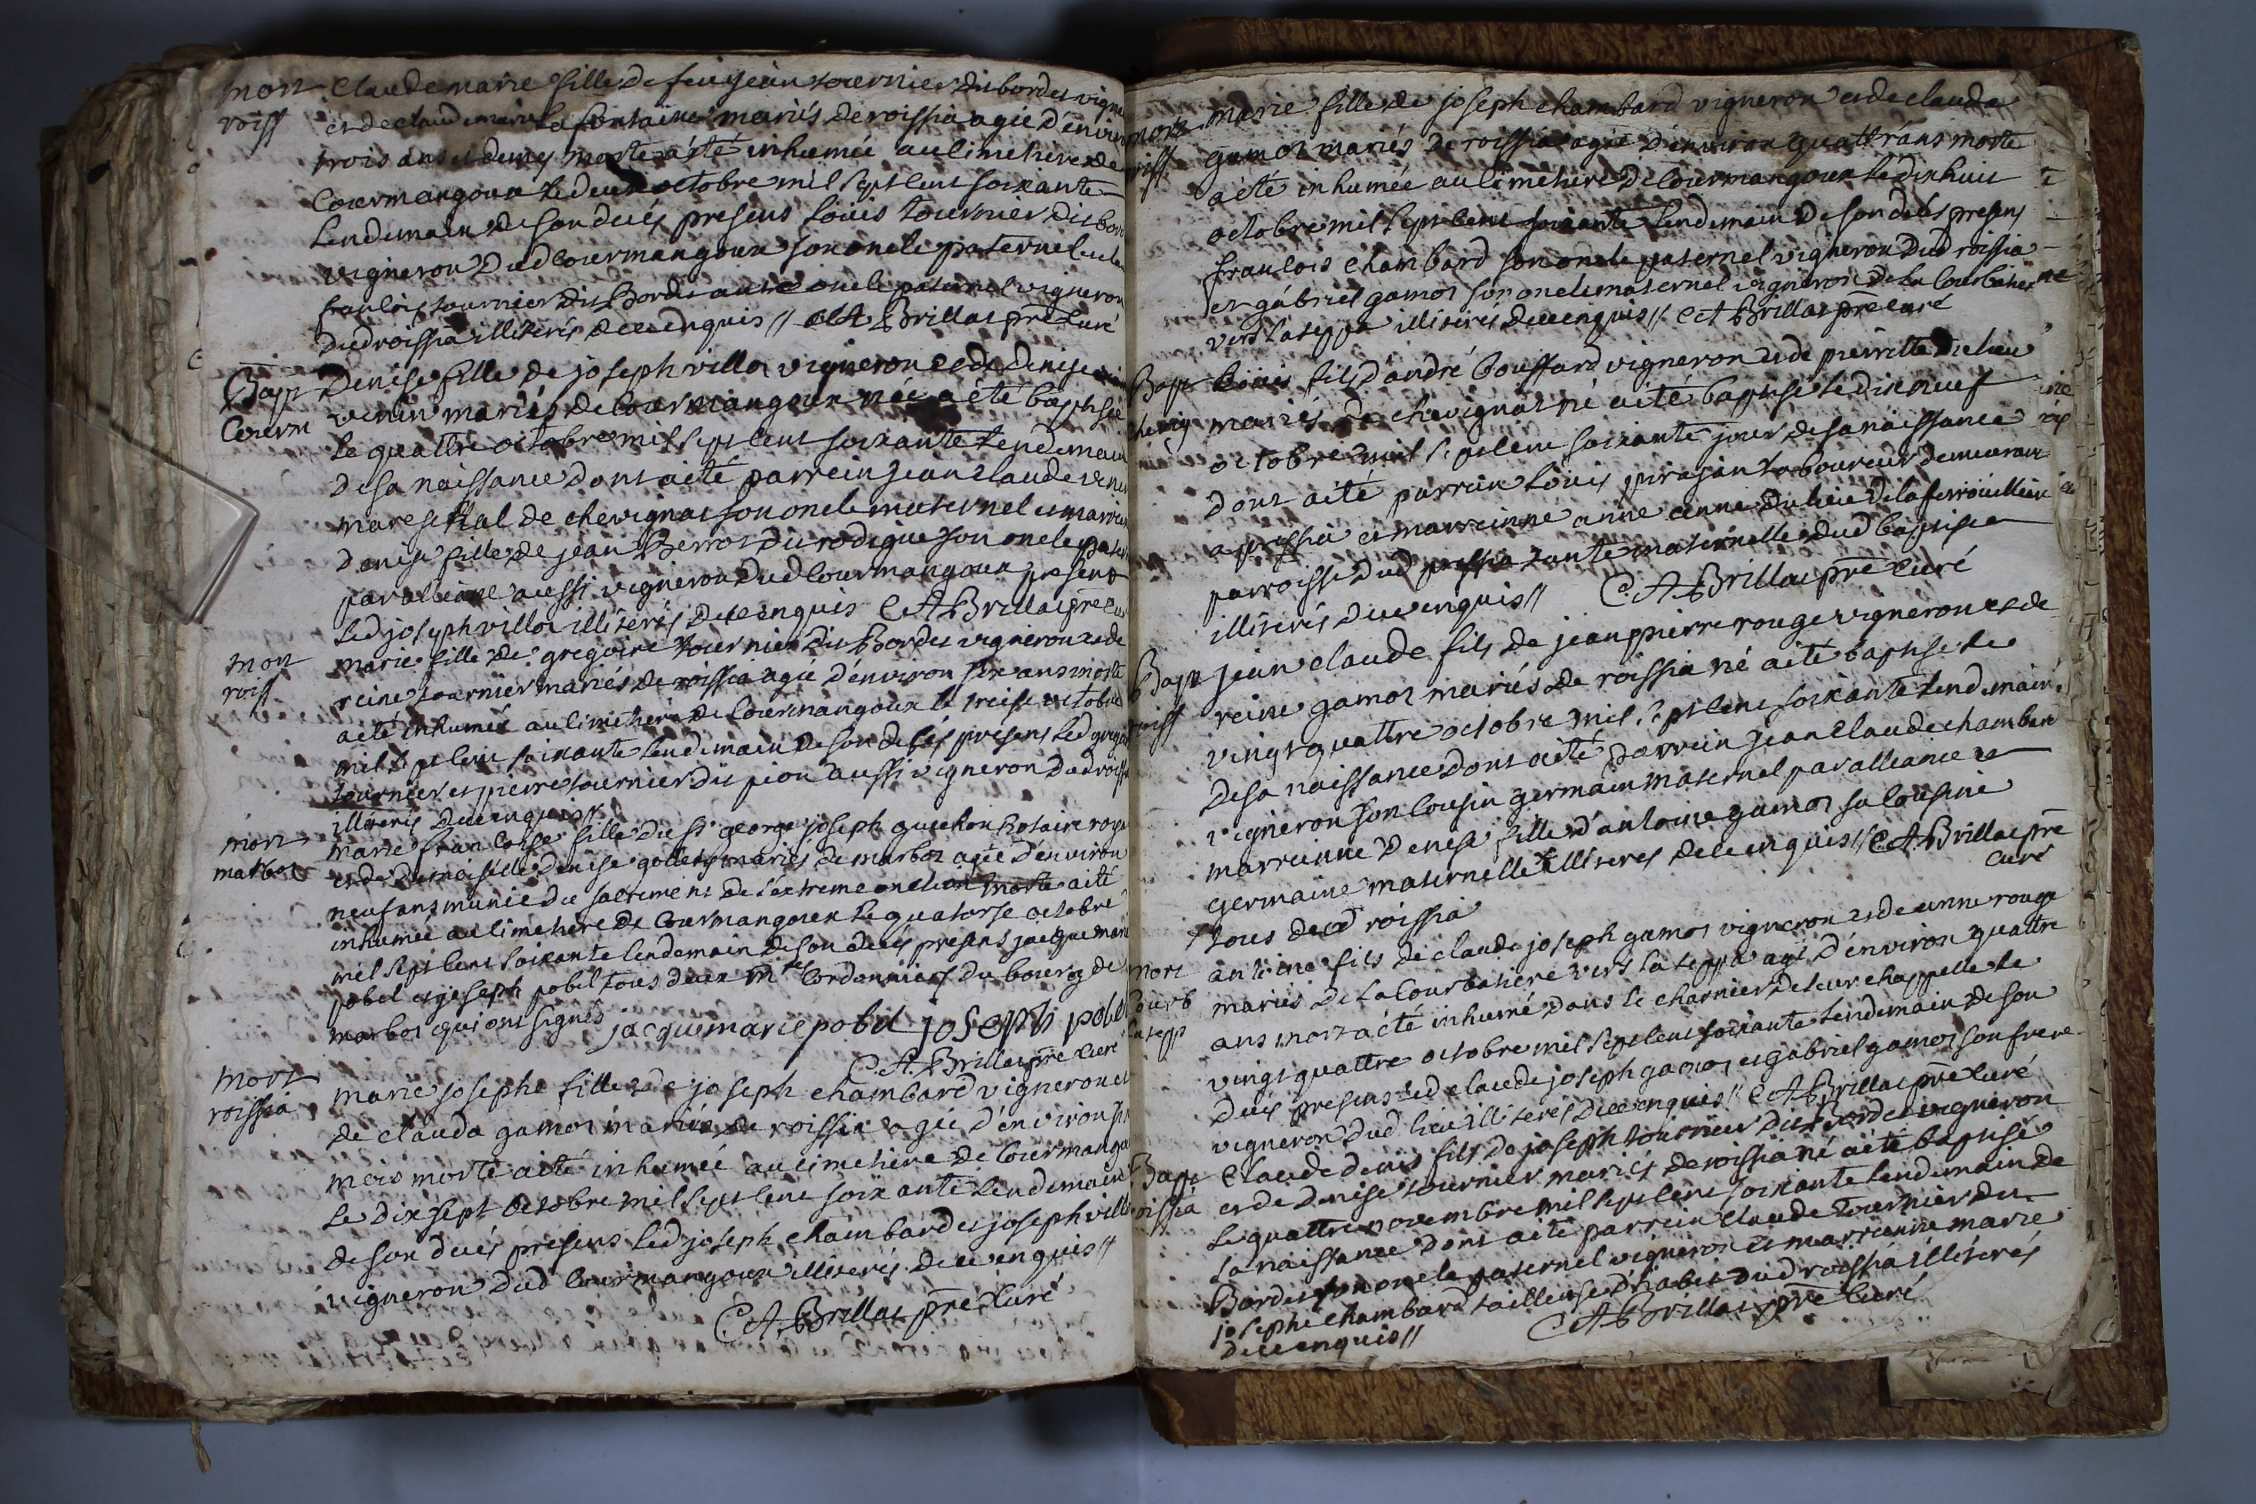 mort claudemarie fille de feu jean tournier dit bordes vigne
roiss et de claudemarie la fontaine mariés de roissia agée d'environ
trois ans et demy morte a été inhumée au cimetiere de
Courmangoux le deux octobre mil sept cent soixante
Lendemain de son decés presens Loüis tournier dit bor
vigneron dud Courmangoux son oncle paternel et
francois tournier dit Bordes autre oncle paternel vigneron
dud roissia illiterés de ce enquis // C A Brillat pre curé
Bapt Denise fille de joseph villot vigneron et de Denise
Courm venin mariés de Courmangoux née a été baptisée
le quattre octobre mil sept cent soixante Lendemain
de sa naissance dont a été parrein jean claude venin
mareschal de chevignat son oncle maternel et marrein
Denise fille de jean Perrot du rodique son oncle pater
par alliance aussi vigneron dud Courmangoux presens
Led joseph villot illiterés de ce enquis C A Brillat pre cur
mort marie fille de gregoire tournier dit Bordes vigneron et de
roiss reine tournier mariés de roissia agée d'environ six ans morte
a été inhumée au cimetiere de Courmangoux le treise octobre
mil sept cent soixante Lendemain de son decés presens Led gregoi
tournier et pierre tournier dit pion aussi vigneron dud roissia
illiterés de ce enquis //
mort marie francoise fille du sr george joseph guichon Notaire roya
marbos et de Demoiselle Denise gollety mariés de marbos agée d'environ
neuf ans munie du sacrement de l'extreme onction morte a été
inhumée au cimetiere de Courmangoux le quatorse octobre
mil sept cent soixante Lendemain de son decés presens jacque marie
pobel et joseph pobel tous deux mtre Cordonniers du bourg de
marbos qui ont signés jacque marie pobel joseph pobel
C. A. Brillat pre curé
mort marie josephe fille de joseph chambard vigneron et
roissia de clauda gamot mariés de roissia agée d'environ six
mois morte a été inhumée au cimetiere de Courmangou
Le dixsept octobre mil sept cent soixante Lendemain
de son decés presens Led joseph chambard et joseph villot
vigneron dud Courmangoux illiterés de ce enquis //
C. A. Brillat pre curé
morte marie fille de joseph chambard vigneron et de clauda
roiss gamot mariés de roissia agée d'environ quattr'ans morte
a été inhumée au cimetiere de Courmangoux le dixhuit
octobre mil sept cent soixante Lendemain de son decés presens
francois chambard son oncle paternel vigneron dud roissia
et gabriel gamot son oncle maternel vigneron de la Courbatiere
vers la teppe illiterés de ce enquis // C A Brillat pre curé
Bapt Loüis fils d'andré bouffard vigneron et de pierrette Dulieu
chevig mariés de chevignat né a été baptisé le dix neuf
octobre mil sept cent soixante jour de sa naissance
dont a été parrein Loüis pirajan Laboureur demeurant
a pressia et marreinne anne anne Dulieu de la ferrouillere
parroisse dud pressia tante maternelle dud baptisé
illiterés de ce enquis // C. A Brillat pre curé
Bapt jean claude fils de jean pierre rouge vigneron et de
roiss reine gamot mariés de roissia né a été baptisé le
vingt quattre octobre mil sept cent soixante Lendemain
de sa naissance dont a été parrein jean claude chambard
vigneron son cousin germain maternel par alliance et
marreinne Denise fille d'antoine gamot sa cousine
germaine maternelle illiterés de ce enquis // C. A. Brillat pre
curé
tous dud roissia
mort antoine fils de claude joseph gamot vigneron et de anne rouge
Courb mariés de la Courbatiere vers la teppe agé d'environ quattre
lateppe ans mort a été inhumé dans le charnier de leur chappelle le
vingt quattre octobre mil sept cent soixante Lendemain de son
decés presens Led claude joseph gamot et gabriel gamot son frere
vigneron dud lieu illiterés de ce enquis // C A Brillat pre curé
Bapt claude denis fils de joseph tournier dit Bordes vigneron
roissia et de Denise tournier mariés de roissia né a été baptisé
le quattre novembre mil sept cent soixante Lendemain de
sa naissance dont a été parrein claude tournier du
Bordes son oncle paternel vigneron et marreinne marie
josephe chambard tailleuse d'habit dud roissia illiterés
de ce enquis // C A Brillat pre curé